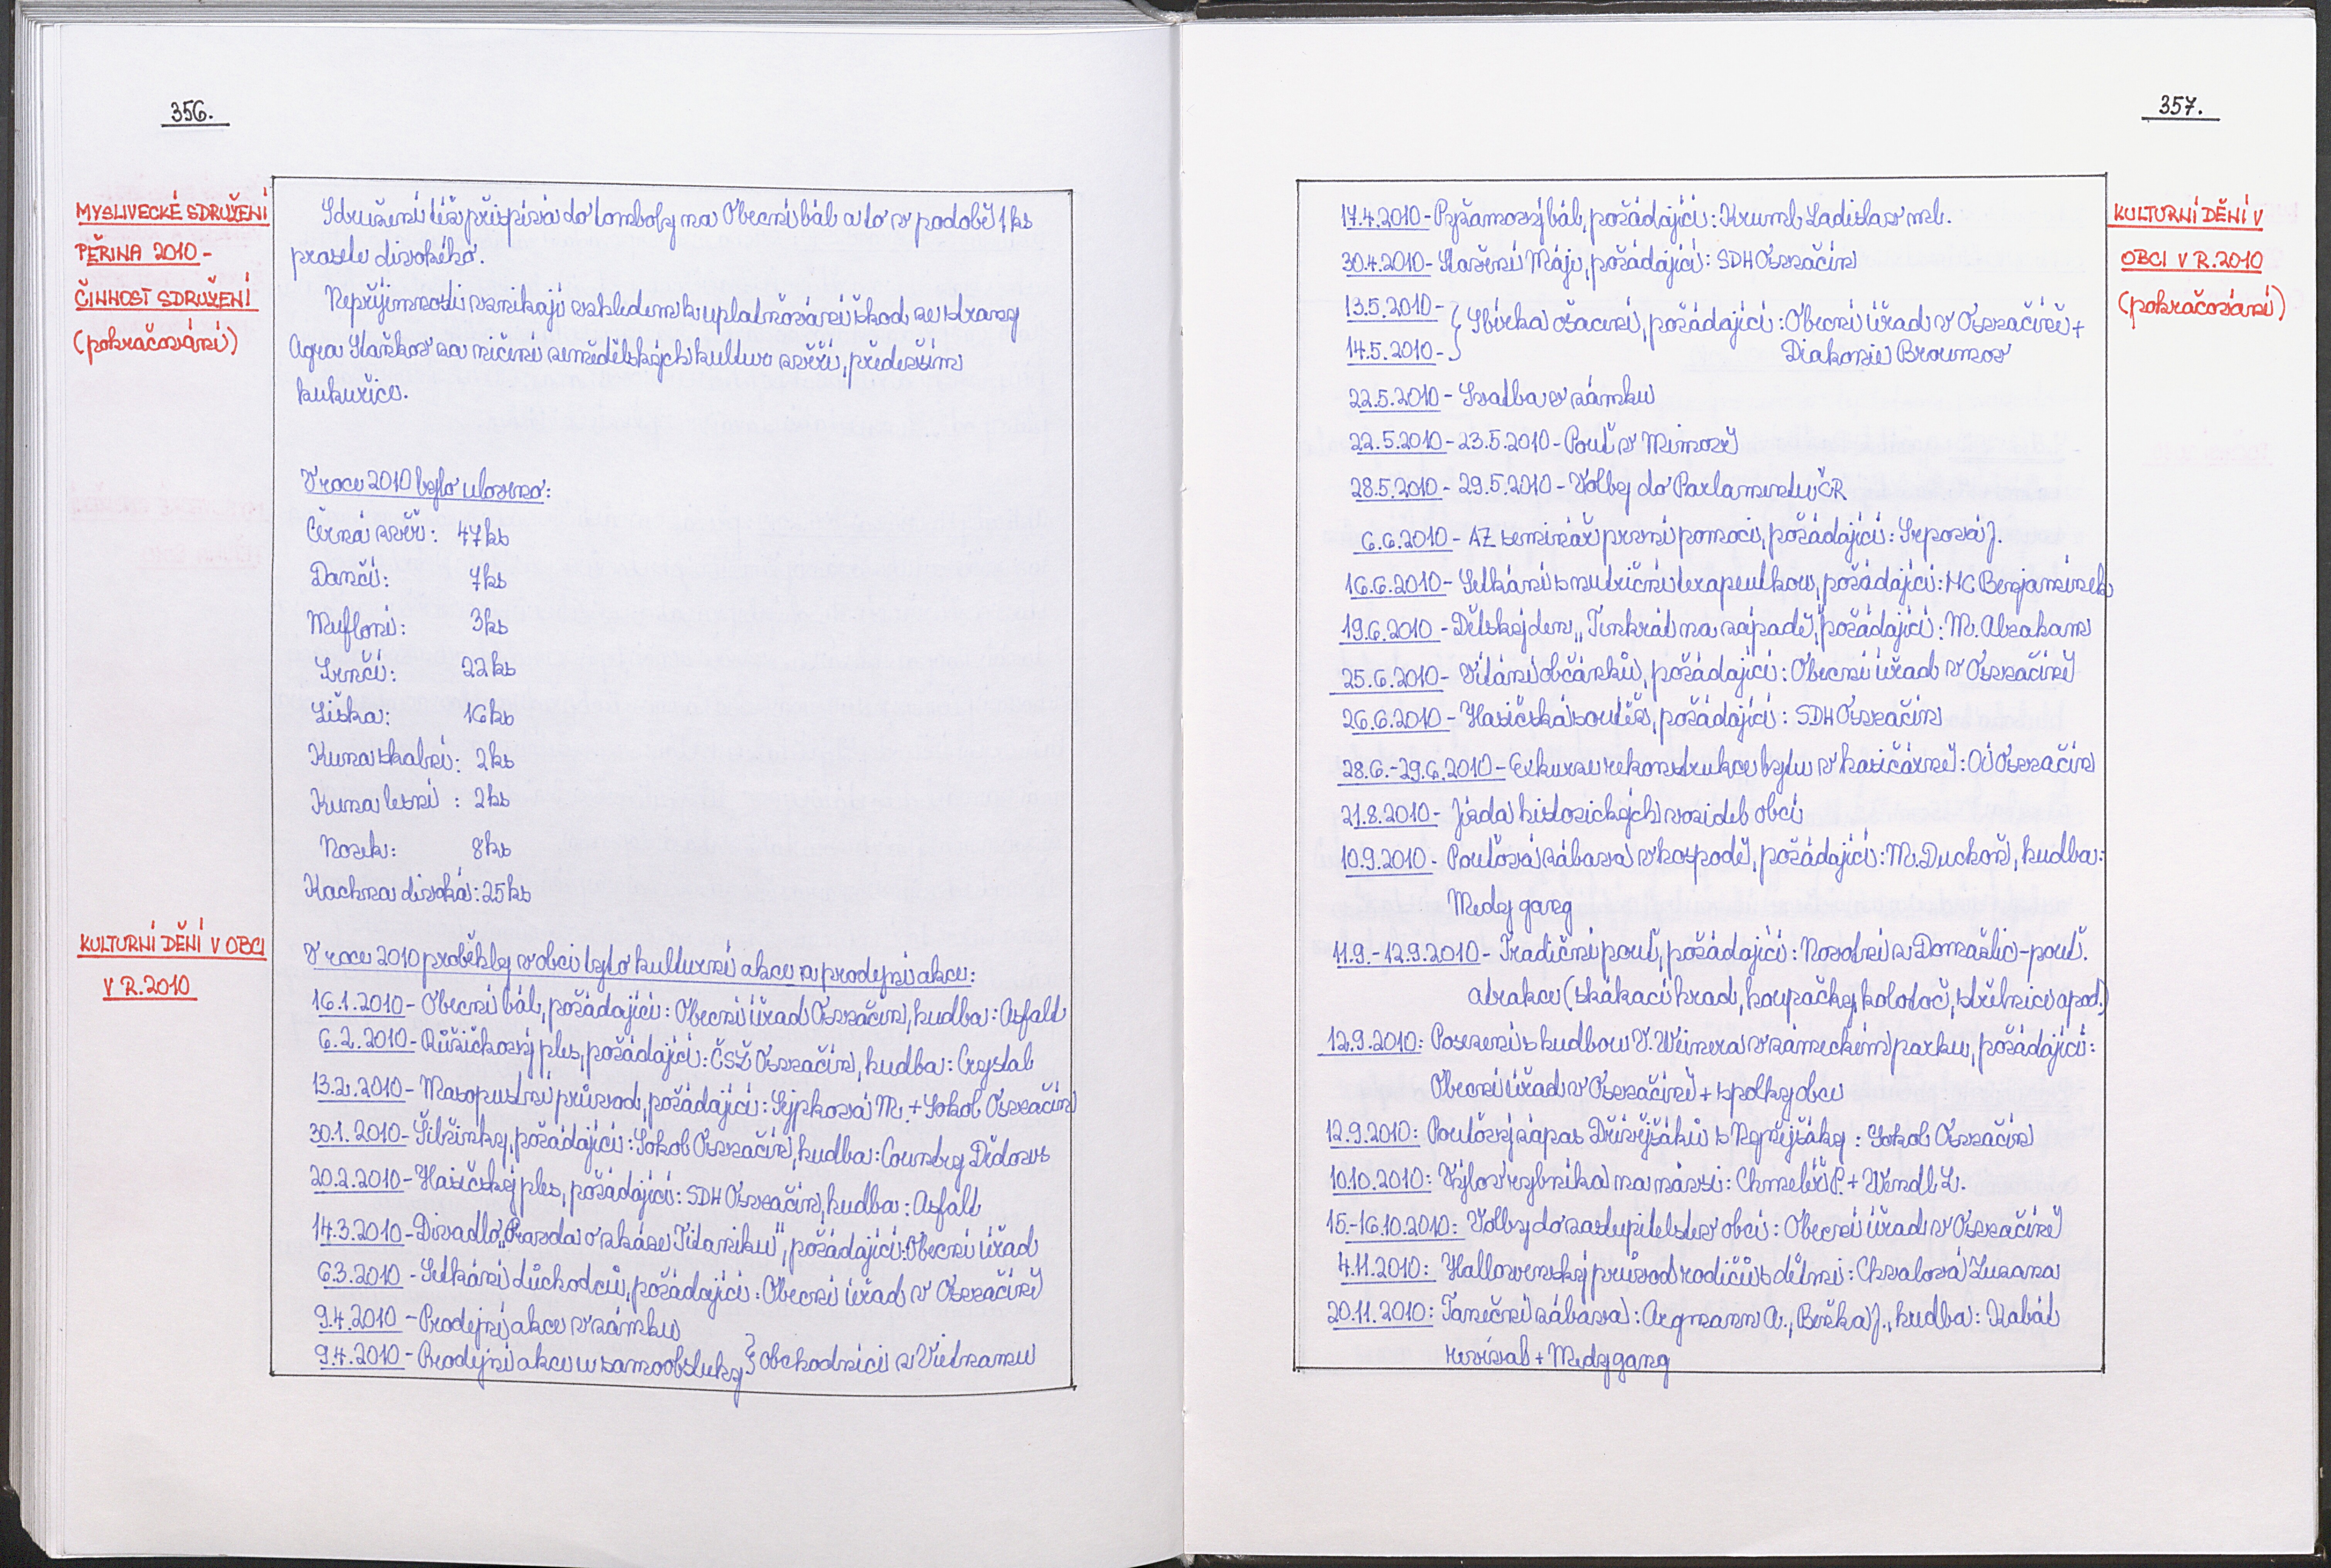 356.
MYSLIVECKÉ SDRUŽENÍ
PĚŘINA 2010 -
ČINNOST SDRUŽENÍ
(pokračování)
Sdružení též přispívá do tomboly na Obecní bál a to v podobě 1 ks
prasete divokého.
Nepříjemnosti vznikají vzhledem k uplatňování škod ze strany
Agra Staňkov za ničení zemědělských kultur zvěří, především
kukuřice.
V roce 2010 bylo uloveno:
Černá zvěř: 47 ks
Dančí: 7 ks
Mufloni: 3 ks
Srnčí: 22 ks
Liška: 16 ks
Kuna skalní: 2 ks
Kuna lesní: 2 ks
Norek: 8 ks
Kachna divoká: 25 ks
KULTURNÍ DĚNÍ V OBCI
V R. 2010
V roce 2010 proběhly v obci tyto kulturní akce a prodejní akce:
16.1.2010 - Obecní bál, pořádající: Obecní úřad Osvračín, hudba: Asfalt
6.2.2010 - Růžičkový ples, pořádající: ČSŽ Osvračín, hudba: Crystal
13.2.2010 - Masopustní průvod, pořádající: Sýpková M. + Sokol Osvračín
30.1.2010 - Šibřinky, pořádající: Sokol Osvračín, hudba: Country Dědovs
20.2.2010 - Hasičský ples, pořádající: SDH Osvračín, hudba: Asfalt
14.3.2010 - Divadlo „Pravda o zkáze Titaniku", pořádající: Obecní úřad
6.3.2010 - Setkání důchodců, pořádající: Obecní úřad v Osvračíně
9.4.2010 - Prodejní akce v zámku
9.4.2010 - Prodejní akce u samoobsluhy } obchodníci z Vietnamu
357.
KULTURNÍ DĚNÍ V
OBCI V R. 2010
(pokračování)
17.4.2010 - Pyžamový bál, pořádající: Kruml Ladislav ml.
30.4.2010 - Stavění Máje, pořádající: SDH Osvračín
13.5.2010 - } Sbírka ošacení, pořádající: Obecní úřad v Osvračíně +
14.5.2010 - Diakonie Broumov
22.5.2010 - Svatba v zámku
22.5.2010 - 23.5.2010 - Pouť v Mimově
28.5.2010 - 29.5.2010 - Volby do Parlamentu ČR
6.6.2010 - AZ seminář první pomoci, pořádající: Srpová J.
16.6.2010 - Setkání s nutriční terapeutkou, pořádající: MC Benjamínek
19.6.2010 - Dětský den „Tenkrát na západě", pořádající: M. Abraham
25.6.2010 - Vítání občánků, pořádající: Obecní úřad v Osvračíně
26.6.2010 - Hasičská soutěž, pořádající: SDH Osvračín
28.6.-29.6.2010 - Exkurze rekonstrukce bytu v hasičárně: OÚ Osvračín
21.8.2010 - Jízda historických vozidel obcí
10.9.2010 - Pouťová zábava v hospodě, pořádající: M. Duchoň, hudba:
Medy gang
11.9.-12.9.2010 - Tradiční pouť, pořádající: Novotní z Domažlic - pouť.
atrakce (skákací hrad, houpačky, kolotoč, střelnice apod.)
12.9.2010: Posezení s hudbou V. Weinera v zámeckém parku, pořádající:
Obecní úřad v Osvračíně + spolky obce
12.9.2010: Pouťový zápas Dřívějšáků s Nynějšáky: Sokol Osvračín
10.10.2010: Výlov rybníka na návsi: Chmelíř P. + Wendl L.
15.-16.10.2010: Volby do zastupitelstev obcí: Obecní úřad v Osvračíně
4.11.2010: Halloweenský průvod rodičů s dětmi: Chvalová Zuzana
20.11.2010: Taneční zábava: Aegmann A., Beňka J., hudba: Kabát
revival + Medy gang